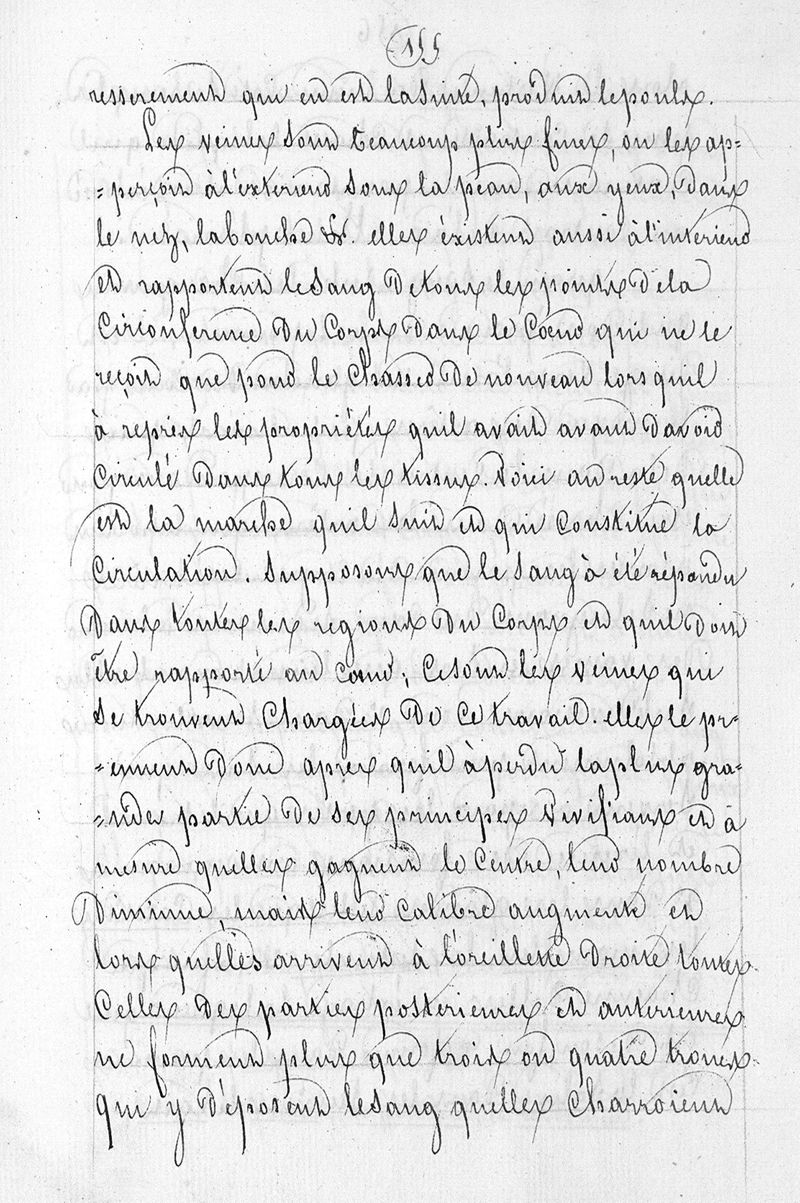 155
resserement qui en est la suite, produit le pouls.
Les veines sont beaucoup plus fines, on les ap-
=perçoit à l'exterieur sous la peau, aux yeux, dans
le nez, la bouche &. elles éxistent aussi à l'interieur
et rapportent le sang de tous les points de la
Circonference du Corps dans le Coeur qui ne le
reçoit que pour le Chasser de nouveau lors quil
à répris les propriétés quil avait avant davoir
Circulé dans tous les tissus. Voici au reste quelle
est la marche quil suit et qui Constitue la
Circulation. Supposons que le sang à été répandu
dans toutes les regions du Corps et quil doit
être rapporté au coeur, Ce sont les veines qui
se trouvent Chargées de Ce travail. elles le pr-
=ennent donc apres quil à perdu la plus gra-
=nde partie de ses principes vivifians et à
mesure quelles gagnent le Centre, leur nombre
diminue, mais leur Calibre augmente et
lors quelles arrivent à l'oreillette droite toutes
Celles des parties posterieures et anterieures
ne forment plus que trois ou quatre troncs
qui y déposent le sang quelles Charroient